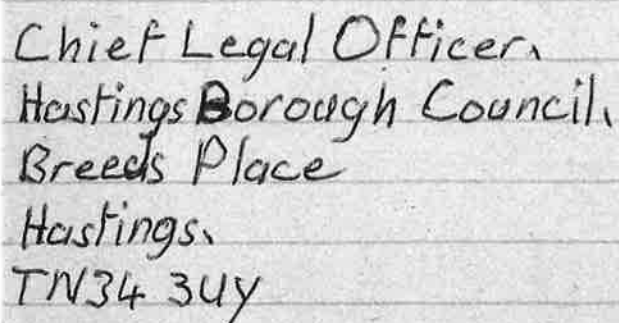 Chief Legal Officer,
Hastings Borough Council,
Breeds Place
Hastings,
TN34 3UY